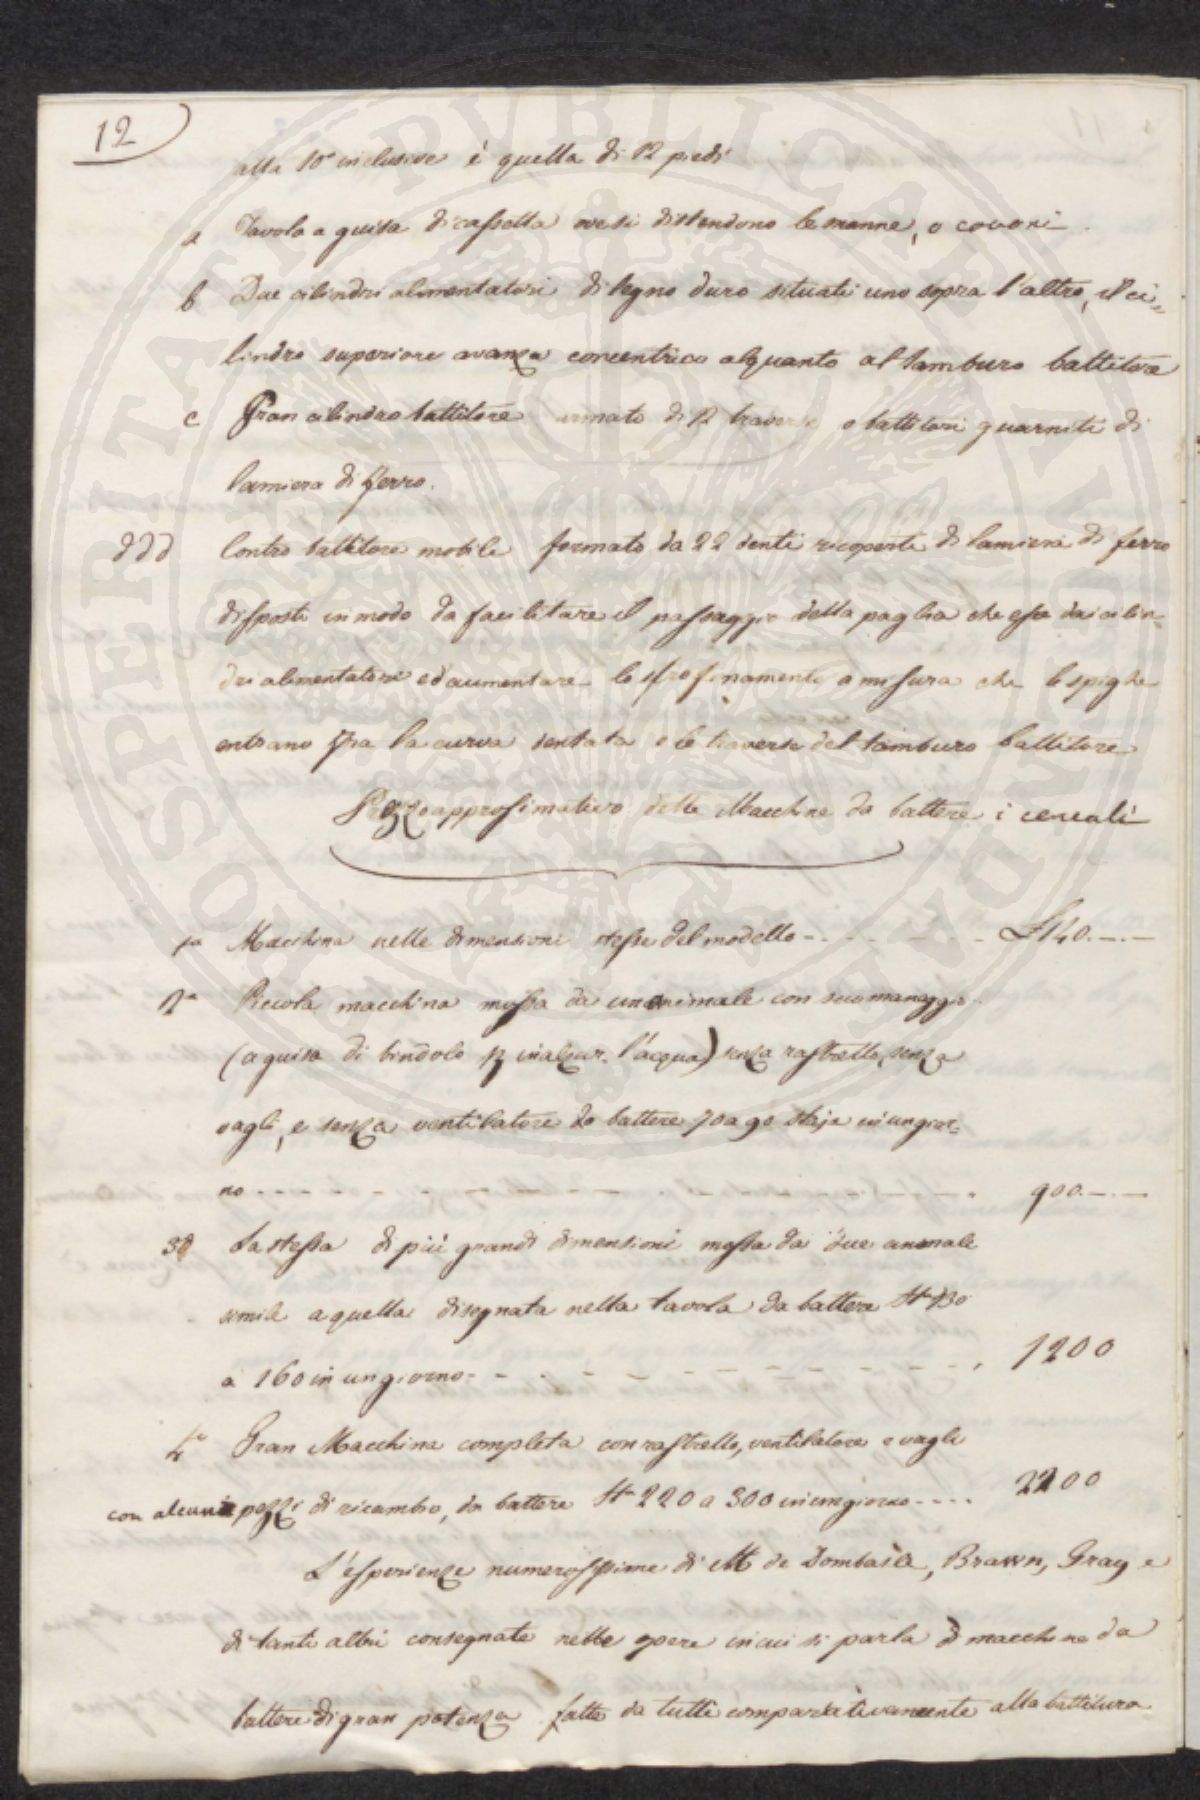 12
alla 10ª inclusive è quella di 12 piedi
a Tavola a guisa di cassetta ove si distendono le manne, o covoni
b Due cilindri alimentatori di legno duro situati uno sopra l'altro, il ci=
lindro superiore avanza concentrico alquanto al tamburo battitore
c Gran cilindro battitore armato di 12 traverse o battitori guarniti di
lamiera di ferro.
ddd Contro battitore mobile formato da 22 denti ricoperti di lamiera di ferro
disposti in modo da facilitare il passaggio della paglia che esce dai cilin=
dri alimentatori ed aumentare lo sfrofinamento a misura che le spighe
entrano fra la curva dentata e le traverse del tamburo battitore
Prezzo approssimativo delle Macchine da battere i cereali
1ª Macchina nelle dimensioni stesse del modello - - - - - - £140.—.—
2ª Piccola macchina mossa da un animale con suo maneggio
(a guisa di bindolo p inalzar l'acqua) senza rastrello, senza
vagli, e senza ventilatore da battere 70 a 90 staja in un gior=
no - - - - - - - - - - - - - - 900.—.—
3ª La stessa di più grandi dimensioni mossa da due animale
simile a quella disegnata nella tavola da battere St 130
a 160 in un giorno - - - - - - - - - - 1200
4ª Gran Macchina completa con rastrello, ventilatore e vagli
con alcuni pezzi di ricambio, da battere St 220 a 300 in un giorno - - - - 2200
L'esperienze numerosissime di M de Dombasle, Brawn, Gray e
di tanti altri consegnate nelle opere in cui si parla di macchine da
battere di gran potenza fatte da tutti comparativamente alla battitura
PROSPERITATI PVBLICAE AVGENDAE